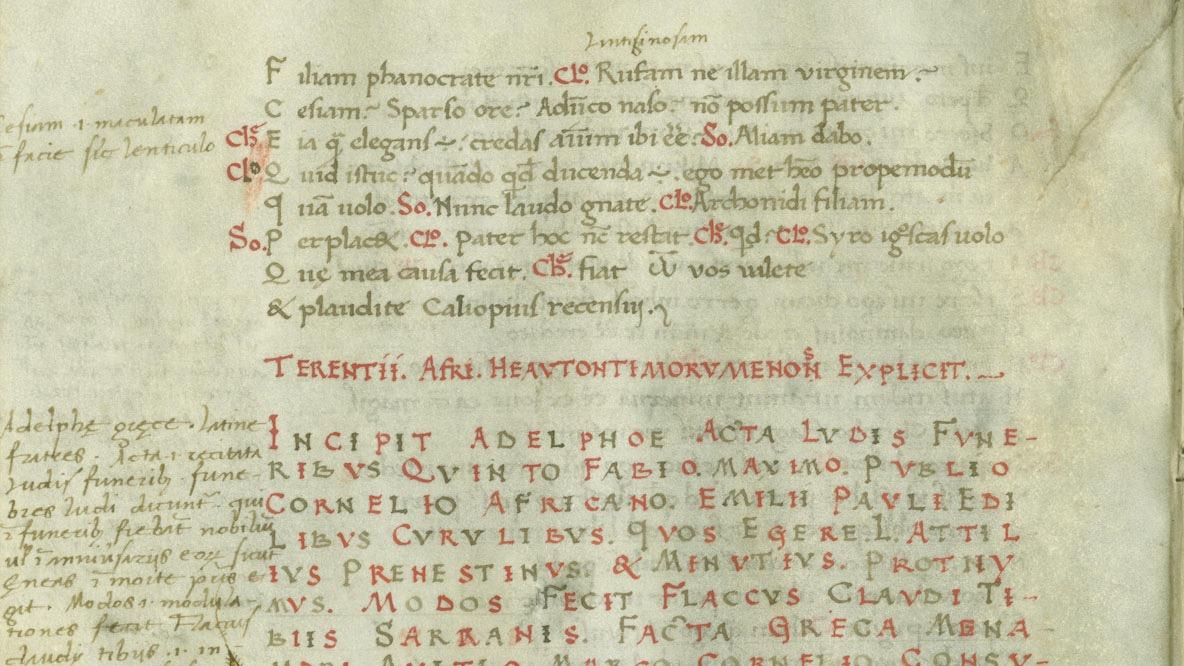 lentiginosam
F iliam phanocrate nr̄i. Clo. Rufam ne illam virginem.
Cesiam. i. maculatam
C esiam? Sparso ore? Adūco naso. nō possum pater.
ī facie sic lenticulo
Chr̄. E ia q̄ elegans ÷. credas aīum ibi eē. So. Aliam dabo.
Clo Q uid istuc? quādo qd̄ ducenda ~. ego met hēo propemodū
q uā uolo. So. Nunc laudo gnate. Clo. Archonidi filiam.
So. P erplac&. Clo. Pater hoc nc̄ restat. Chr̄. qd. Clo. Syro igōscas uolo
Q uę mea causa fecit. Chr̄. fiat ω̄ vos valete
& plaudite Caliopius recensui.
TERENTII. Afri. HEAVTONTIMORVMENONs EXPLICIT.
INCIPIT ADELPHOE ACTA LVDIS FVNE-
RIBVS QVINTO FABIO. MAXIMO. PVBLIO
CORNELIO AFRICANO. EMILII PAVLI EDI
LIBVS CVRVLIBVS. QVOS EGERE. L. ATTIL
IVS PRENESTINVS. & MINVTIVS. PROTHY
MVS. MODOS FECIT FLACCVS CLAVDI TI-
BIIS SARRANIS. FACTA GRECA MENA-
Adelphę gręce. latine
fratres. Acta. i. recitata
ludis funerib; fune-
bres ludi dicunt̄. qui
ī funerib; fiebāt nobiliū
ul' ī anniuersariis eoꝝ sicut
Eneas ī morte pr̄is e-
git. Modos. i. modula
tiones fecit Flaccus
claudi tibiis. i. in